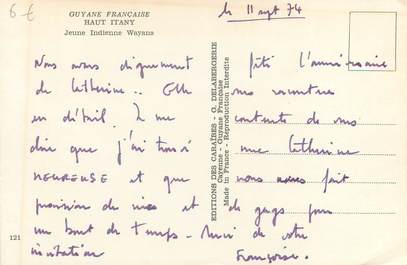 6 €
GUYANE FRANÇAISE
HAUT ITANY
Jeune Indienne Wayana
le 11 sept 74
Nous avons dignement fêté l'anniversaire
de Catherine.. Elle nous racontera
en détail. Je me contente de vous
dire que j'ai trouvé une Catherine
HEUREUSE et que nous avons fait
provision de rires et de gags pour
un bout de temps - Merci de votre
invitation
Françoise.
EDITIONS DES CARAÏBES - G. DELABERGERIE
Cayenne - Guyane Française
Made in France - Reproduction Interdite
121